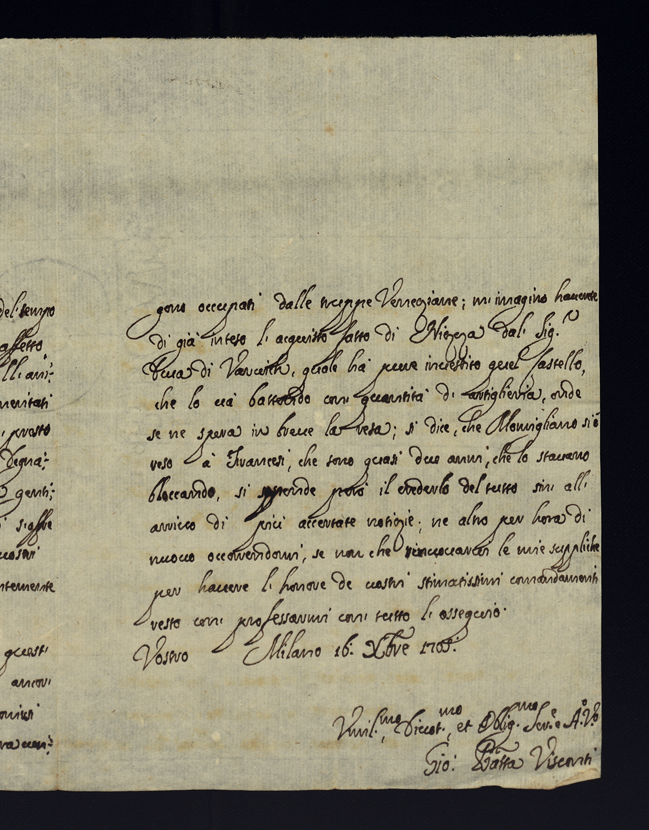 del tempo
affetto
meritati
presto
degna:
genti:
vostri
questi
gono occupati dalle truppe Veneziane; mi imagino havere
di già inteso l'acquisto fatto di Nizza dal Sig.r
Duca di, quale hà pure investito quel Castello,
che lo và battendo con quantità di artiglieria, onde
se ne spera in breve la resa; si dice, che Momigliano sij
reso à Francesi, che sono quasi due anni, che lo stavano
bloccando, si però il crederlo del tutto sin all'
arrivo di più accertate notizie; ne altro per hora di
nuovo occorrendomi, se non che le mie suppliche
per havere l'honore de vostri stimatissimi comandamenti
resto con professarmi con tutto l'ossequio.
Vostro Milano 16. Xbre 1705.
Umil.mo Divot.mo et Oblig.mo Ser.e
Gio: Batta Visconti